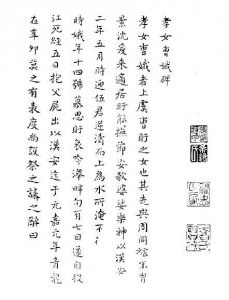 孝女曹娥碑
孝女曹娥者上虞曹盱之女也其先與周同祖末胄
荒沈爰来適居盱能撫節安歌婆娑樂神以漢安
二年五月時迎伍君逆濤而上為水所淹不
時娥年十四號慕思盱哀吟澤畔旬有七日遂自投
江死經五日抱父屍出以漢安迄于元嘉元年青龍
在辛卯莫之有表度尚設祭之誄之辭曰